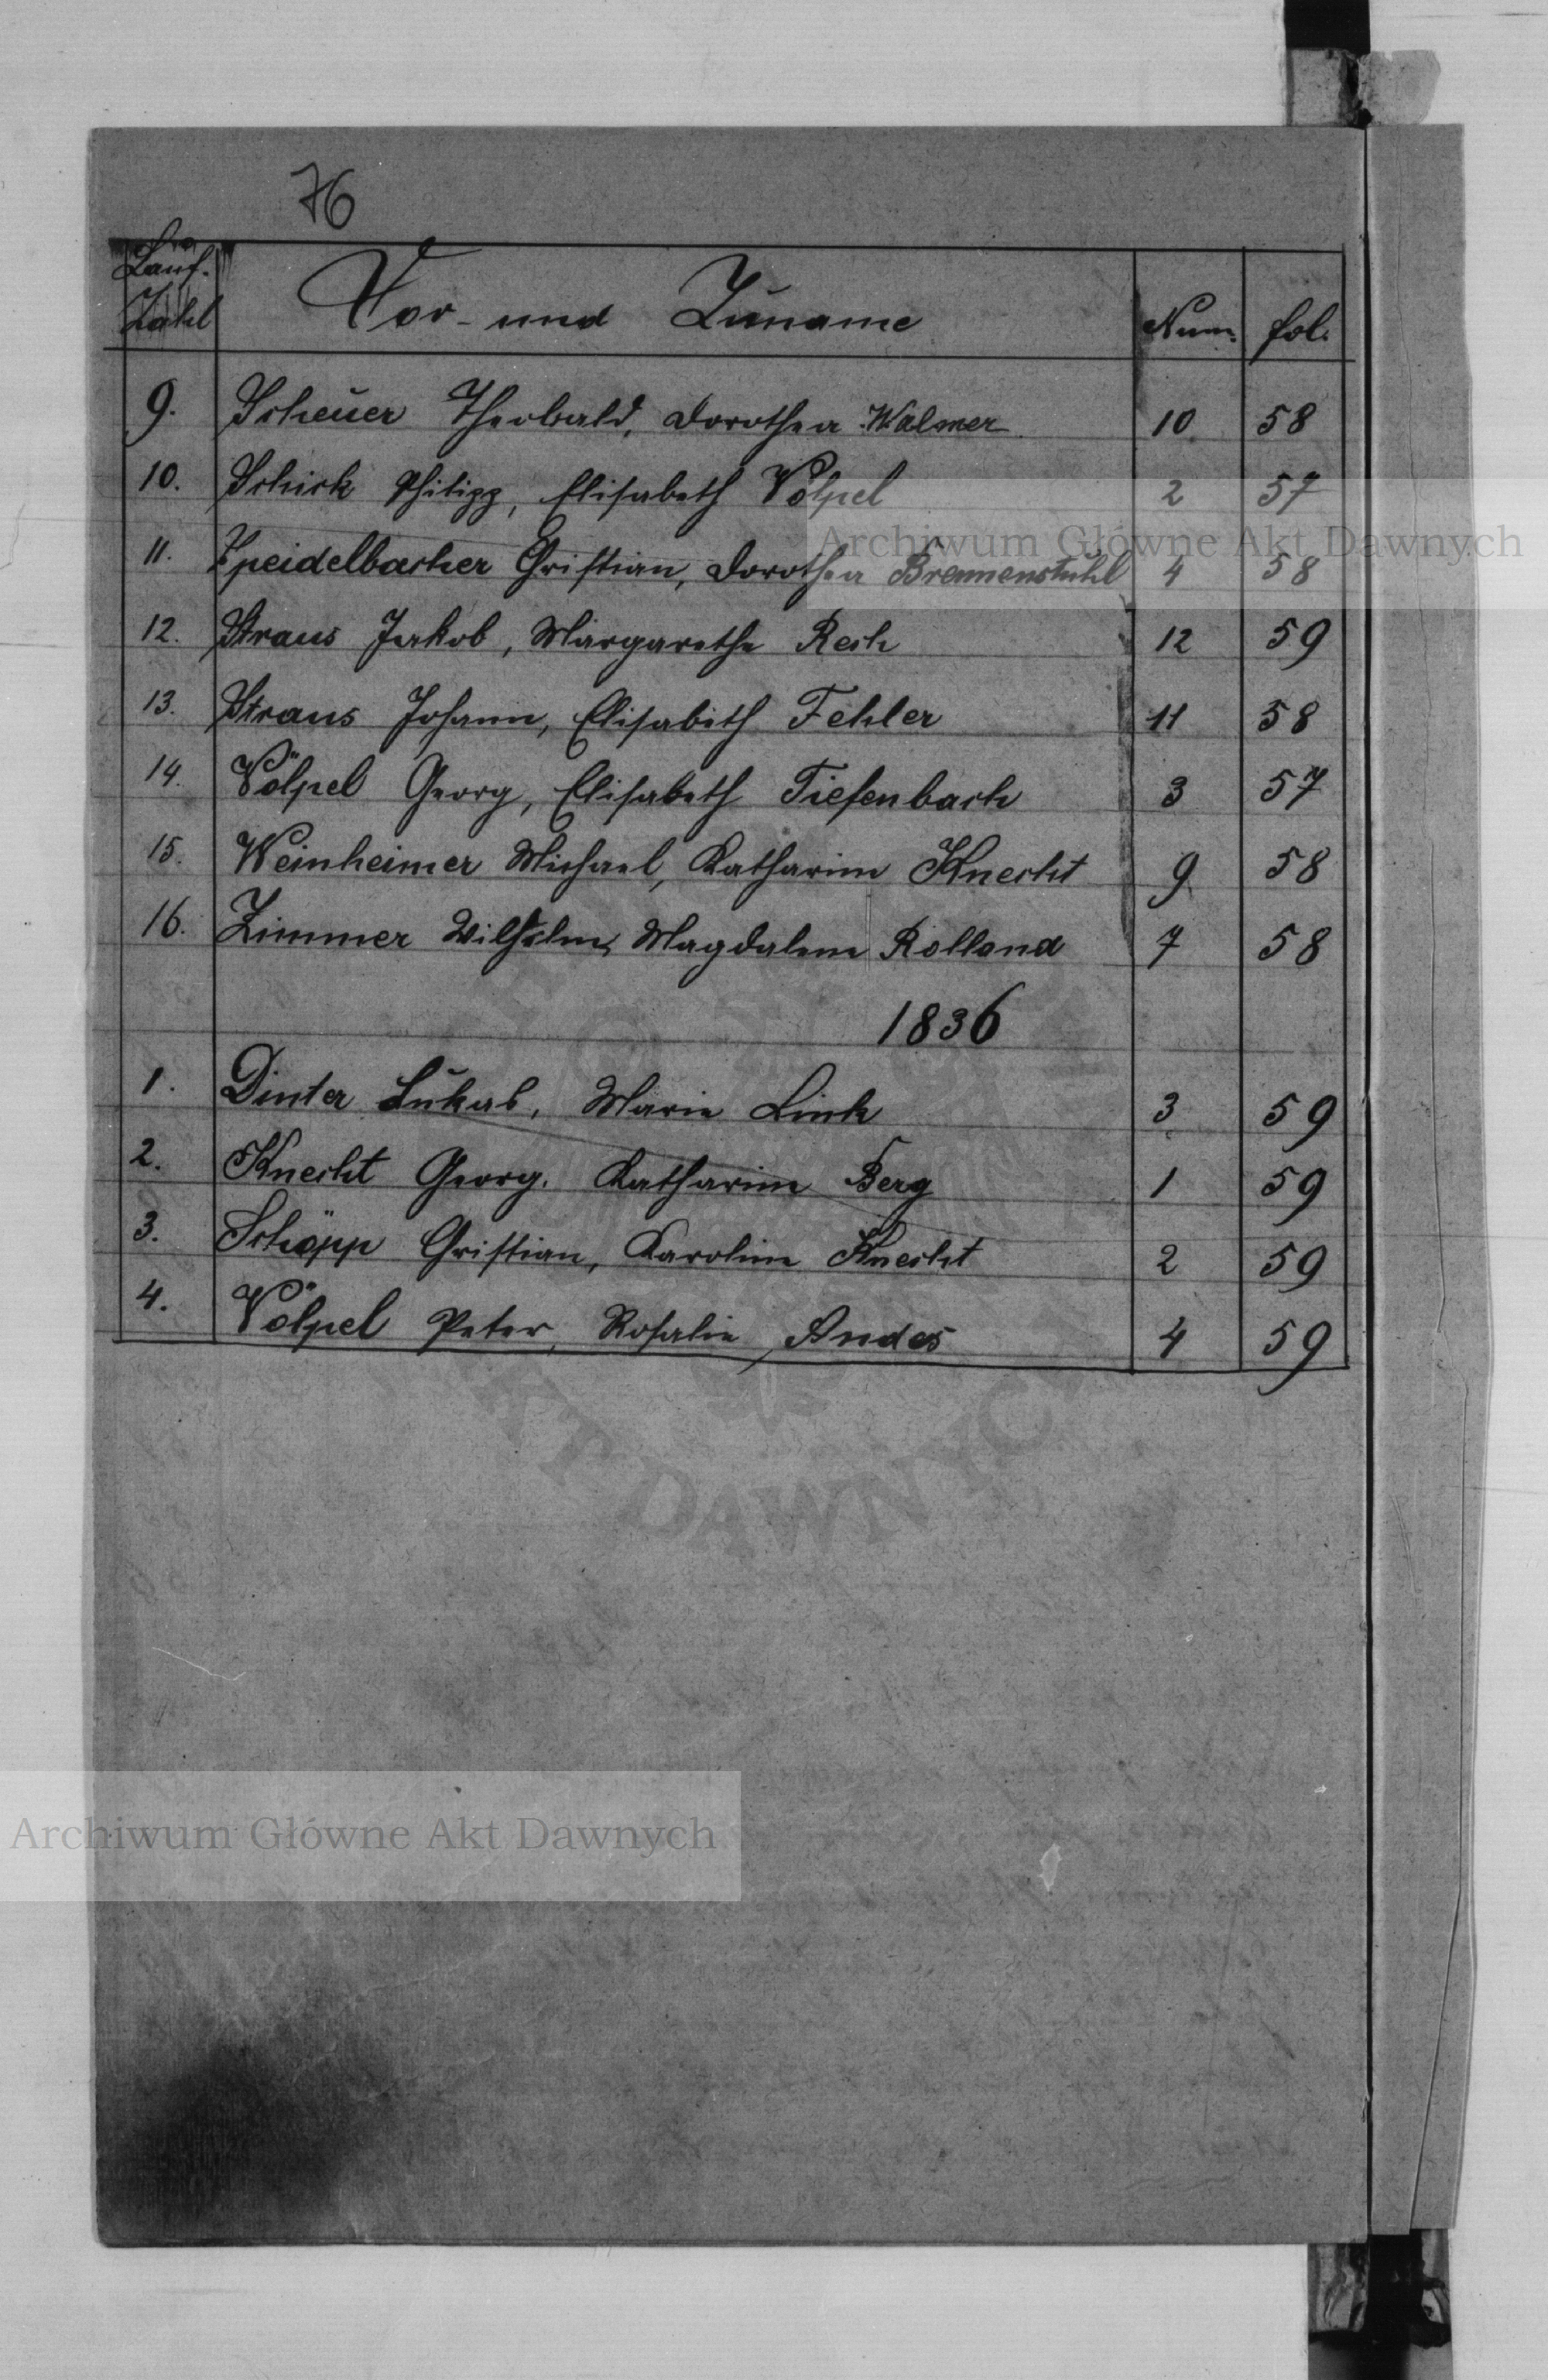 76
Lauf. Zahl Vor- und Zuname Num. fol.
9. Scheuer Theobald, Dorothea Walmer 10 58
10. Schick Philipp, Elisabeth Völpel 2 57
11. Speidelbacher Christian, Dorothea Brennenstuhl 4 58
12. Straus Jakob, Margarethe Resch 12 59
13. Straus Johann, Elisabeth Fehler 11 58
14. Völpel Georg, Elisabeth Tiefenbach 3 57
15. Weinheimer Michael, Katharine Knecht 9 58
16. Zimmer Wilhelm, Magdalene Rolland 7 58
1836
1. Dinter Lukas, Marie Link 3 59
2. Knecht Georg, Katharine Berg 1 59
3. Schöpp Christian, Karoline Knecht 2 59
4. Völpel Peter, Rosalie Andes 4 59
Archiwum Główne Akt Dawnych
AKT DAWNYCH
Archiwum Główne Akt Dawnych